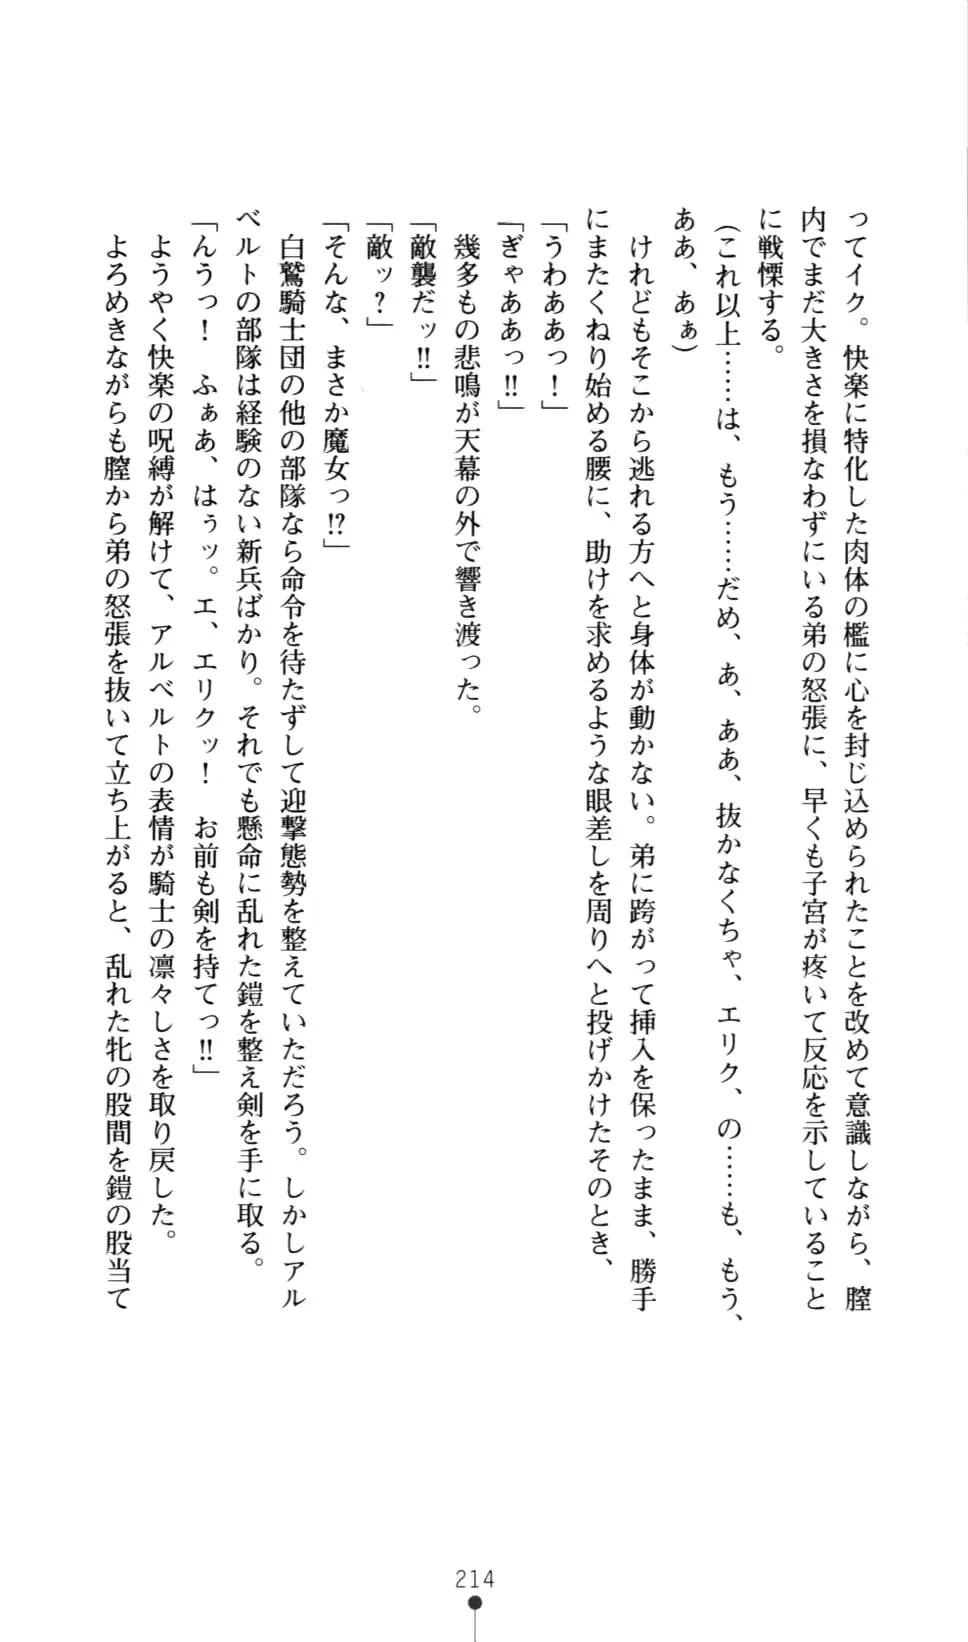 ってイク。快楽に特化した肉体の檻に心を封じ込められたことを改めて意識しながら、膣
内でまだ大きさを損なわずにいる弟の怒張に、早くも子宮が疼いて反応を示していること
に戦慄する。
(これ以上……は、もう……だめ、あ、ああ、抜かなくちゃ、エリク、の……も、もう、
ああ、あぁ)
けれどもそこから逃れる方へと身体が動かない。弟に跨がって挿入を保ったまま、勝手
にまたくねり始める腰に、助けを求めるような眼差しを周りへと投げかけたそのとき、
「うわああっ！」
「ぎゃああっ‼」
幾多もの悲鳴が天幕の外で響き渡った。
「敵襲だッ‼」
「敵ッ？」
「そんな、まさか魔女っ⁉」
白鷲騎士団の他の部隊なら命令を待たずして迎撃態勢を整えていただろう。しかしアル
ベルトの部隊は経験のない新兵ばかり。それでも懸命に乱れた鎧を整え剣を手に取る。
「んうっ！　ふぁあ、はぅッ。エ、エリクッ！　お前も剣を持てっ‼」
ようやく快楽の呪縛が解けて、アルベルトの表情が騎士の凛々しさを取り戻した。
よろめきながらも膣から弟の怒張を抜いて立ち上がると、乱れた牝の股間を鎧の股当て
214